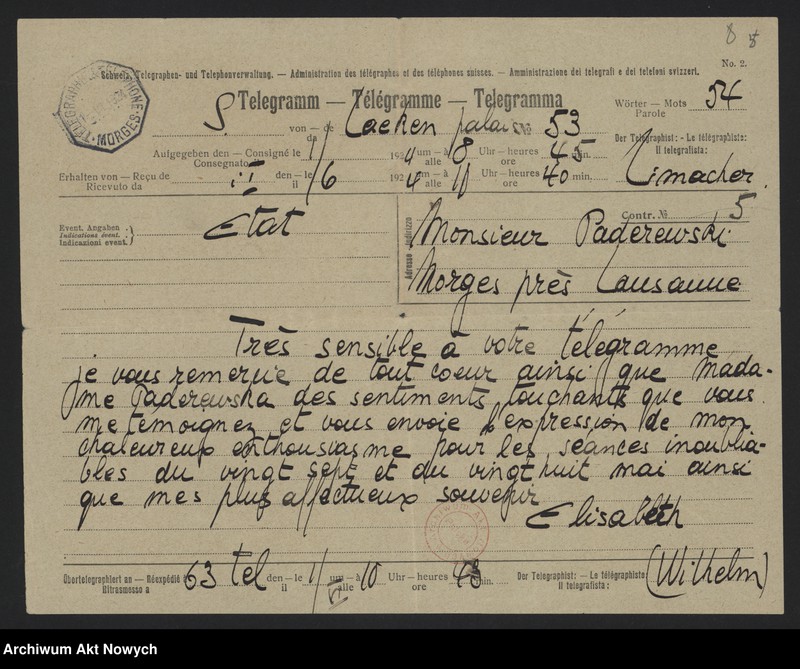 8 8
Schweiz. Telegraphen- und Telephonverwaltung. — Administration des télégraphes et des téléphones suisses. — Amministrazione dei telegrafi e dei telefoni svizzeri.
No. 2.
MORGES
S. Telegramm — Télégramme — Telegramma
Wörter — Mots Parole 54
von — de da Laeken palais 53
Aufgegeben den — Consigné le Consegnato 1/ 1924 um — à alle 8 Uhr — heures ore 45 min.
Der Telegraphist: - Le télégraphiste: Il telegrafista:
Erhalten von — Reçu de Ricevuto da den — le il 1/6 1924 um — à alle Uhr — heures ore 40 min.
Event. Angaben
Indications évent.
Indicazioni event. Etat
Contr. № 5
Adresse Indirizzo
Monsieur Paderewski
Morges près Lausanne
Très sensible à votre télégramme
je vous remercie de tout coeur ainsi que Mada-
me Paderewska des sentiments touchants que vous
me témoignez et vous envoie l'expression de mon
chaleureux enthousiasme pour les séances inoublia-
bles du vingt sept et du vingt huit mai ainsi
que mes plus affectueux souvenir
Elisabeth
Übertelegraphiert an — Réexpédié à Ritrasmesso a 63 tel den — le il 1/VI um — à alle 10 Uhr — heures ore 43 min.
Der Telegraphist: — Le télégraphiste: Il telegrafista: (Wilhelm)
Archiwum Akt Nowych